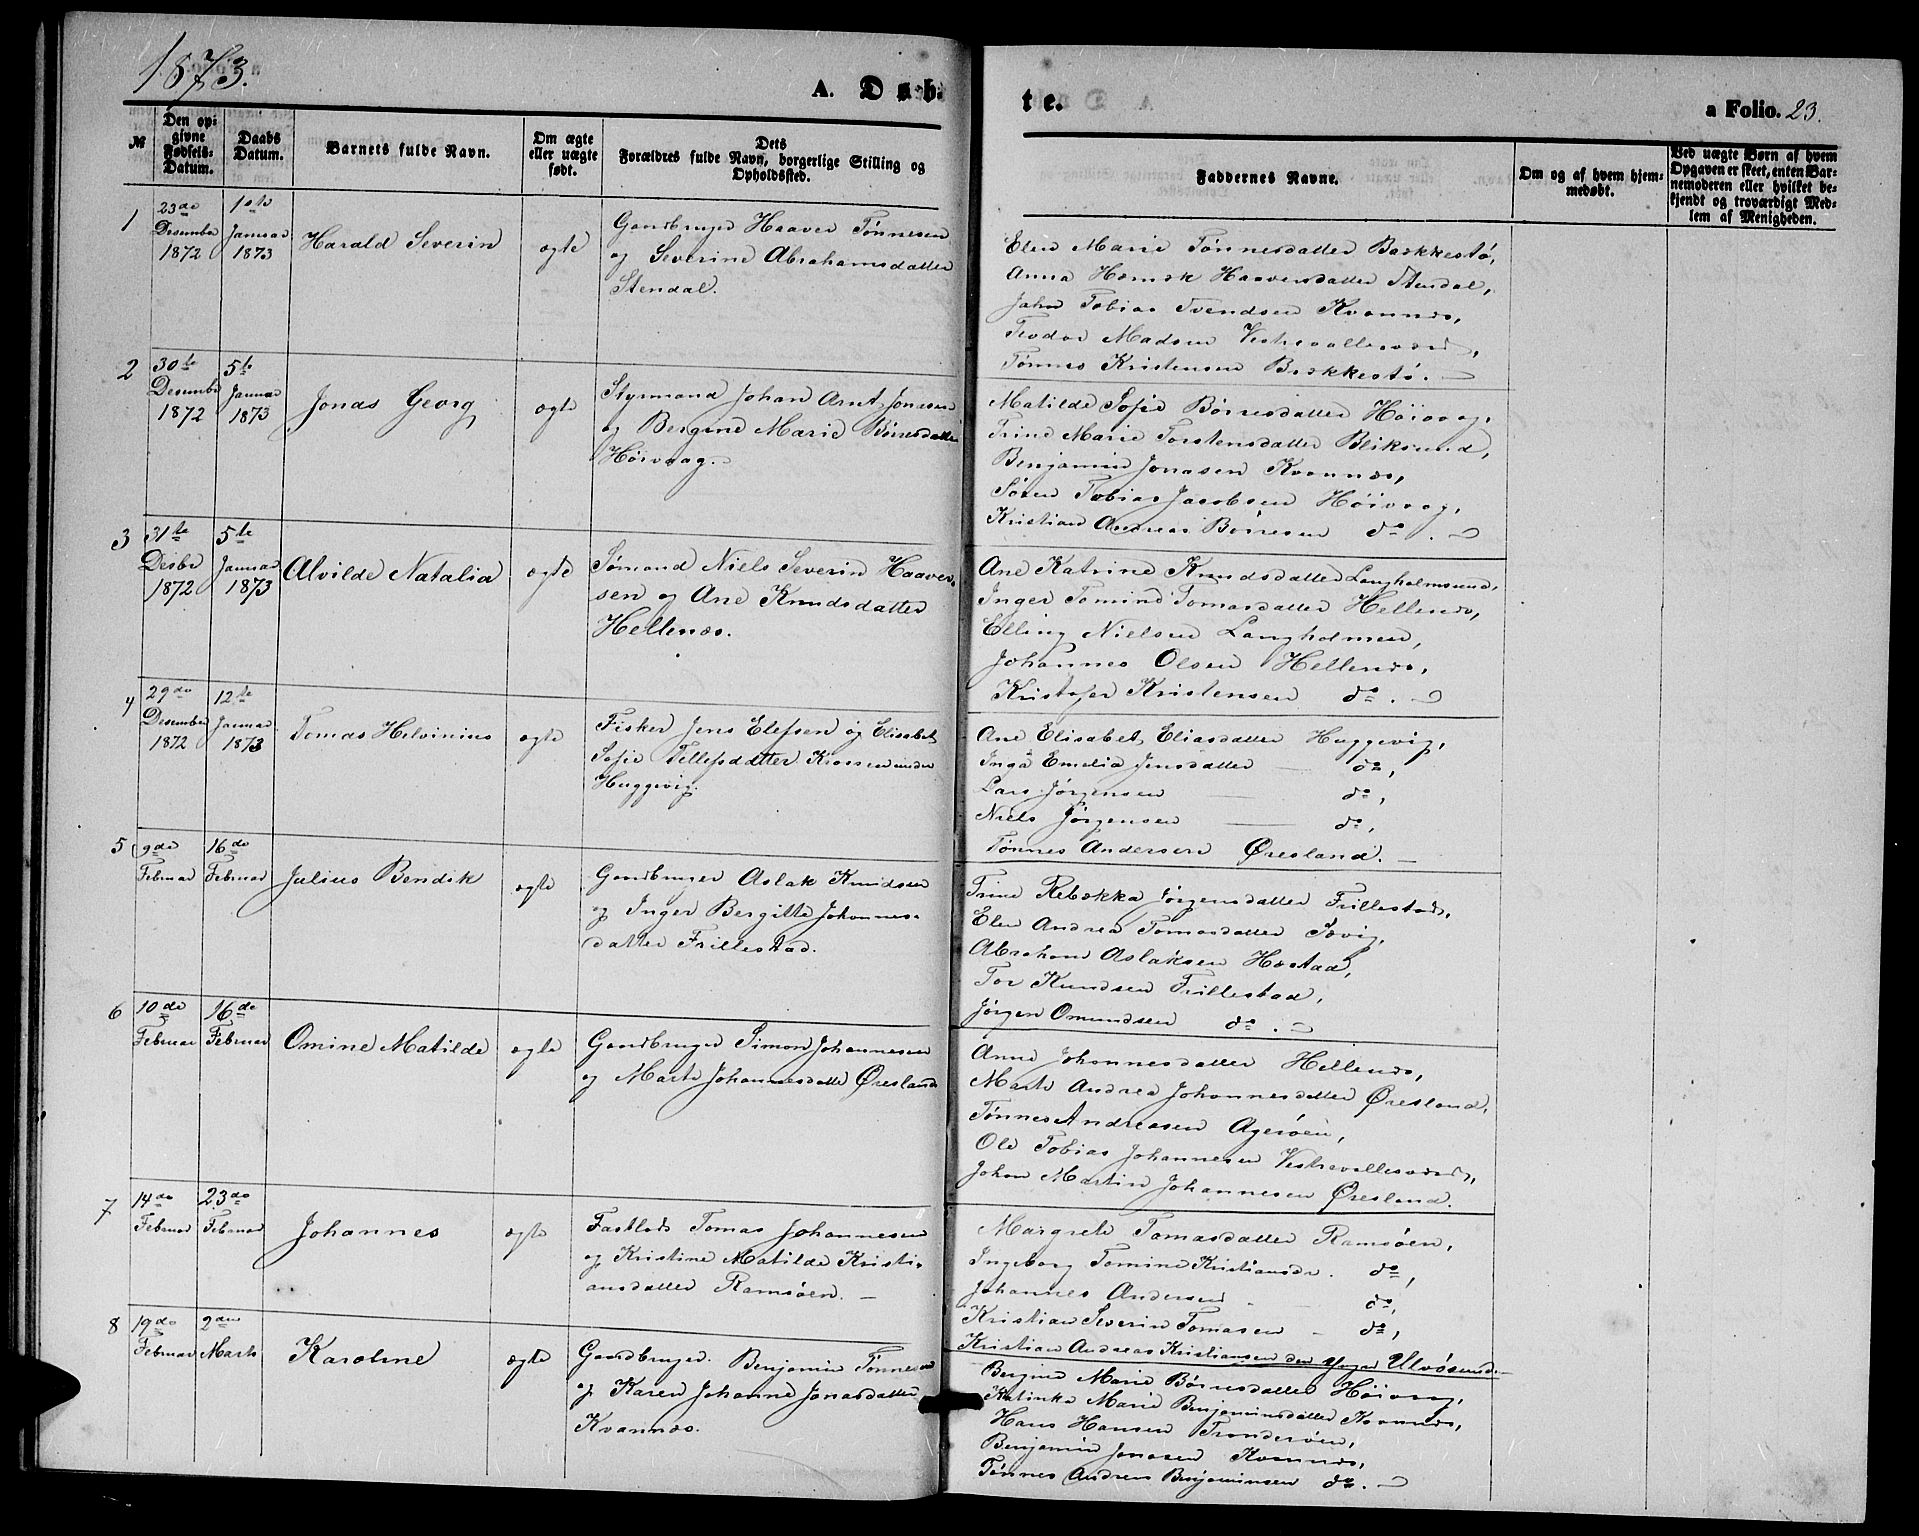 1873.
A. Døb-
te.
a Folio. 23.
№
Den op-
givne
Fødsels-
Datum.
Daabs
Datum.
Barnets fulde Navn.
Om ægte
eller uægte
født.
Dets
Forældres fulde Navn, borgerlige Stilling og
Opholdssted.
Faddernes Navne.
Om og af hvem hjem-
medøbt.
Ved uægte Børn af hvem
Opgaven er skeet, enten Bar-
nemoderen eller hvilket be-
kjendt og troværdigt Med-
lem af Menigheden.
1
23de
Desember
1872
1ste
Januar
1873
Harald Severin
ægte
Gaardbruger Haaver Tønnesen
og Severine Abrahamsdatter
Stendal.
Elen Marie Tønnesdatter Bækkestø,
Anna Haaversdatter Stendal,
Jahn Tobias Svendsen Kvannes,
Teodor Madsen Vestrevallesværd,
Tønnes Kristensen Bækkestø.
2
30te
Desember
1872
5te
Januar
1873
Jonas Georg
ægte
Styrmand Johan Arnt Jonasen
og Bergine Marie Børresdatter
Høivaag.
Matilde Sofie Børresdatter Høivaag,
Trine Marie Torstensdatter Bliksund,
Benjamin Jonasen Kvannes,
Søren Tobias Jacobsen Høivaag,
Kristian Andreas Børresen do.
3
31te
Desbr
1872
5te
Januar
1873
Alvilde Natalia
ægte
Sømand Niels Severin Haaver-
sen og Ane Knudsdatter
Hellenes.
Ane Katrine Knudsdatter Langholmsund,
Inger Tomine Tomasdatter Hellenes,
Elling Nielsen Langholmen,
Johannes Olsen Hellenes,
Kristofer Kristensen do.
4
29de
Desember
1872
12te
Januar
1873
Tomas Helvinius
ægte
Fisker Jens Elefsen og Elisabet
Sofie Tellefsdatter Krossen under
Huggevig.
Ane Elisabet Eliasdatter Huggevig,
Inga Emelia Jensdatter — do,
Lars Jørgensen — do,
Niels Jørgensen — do,
Tønnes Andersen Øresland.
5
9de
Februar
16de
Februar
Julius Bendik
ægte
Gaardbruger Aslak Knudsen
og Inger Bergitte Johannes-
datter Frillestad.
Trine Rebekka Jørgensdatter Frillestad,
Elen Andrea Tomasdatter Sævig,
Abraham Aslaksen Hæstad,
Tor Knudsen Frillestad,
Jørgen Omundsen do.
6
10de
Februar
16de
Februar
Omine Matilde
ægte
Gaardbruger Simon Johannesen
og Marte Johannesdatter Øresland
Anne Johannesdatter Hellenes,
Marte Andrea Johannesdatter Øresland,
Tønnes Andreasen Agerøen,
Ole Tobias Johannesen Vestrevallesværd,
Johan Martin Johannesen Øresland.
7
14de
Februar
23de
Februar
Johannes
ægte
Tomas Johannesen
og Kristine Matilde Kristi-
ansdatter Ramsøen.
Margrete Tomasdatter Ramsøen,
Ingeborg Tomine Kristiansdr. do,
Johannes Andersen - do,
Kristian Severin Tomasen - do,
Kristian Andreas Kristiansen den yngre Ulvøsund.
8
19de
Februar
2den
Marts
Karoline
ægte
Gaardbruger Benjamin Tønnesen
og Karen Johanne Jonasdatter
Kvannes.
Bergine Marie Børresdatter Høivaag,
Katinka Marie Benjaminsdatter Kvannes,
Hans Hansen Trondersøen,
Benjamin Jonasen Kvannes,
Tønnes Andreas Benjaminsen do.